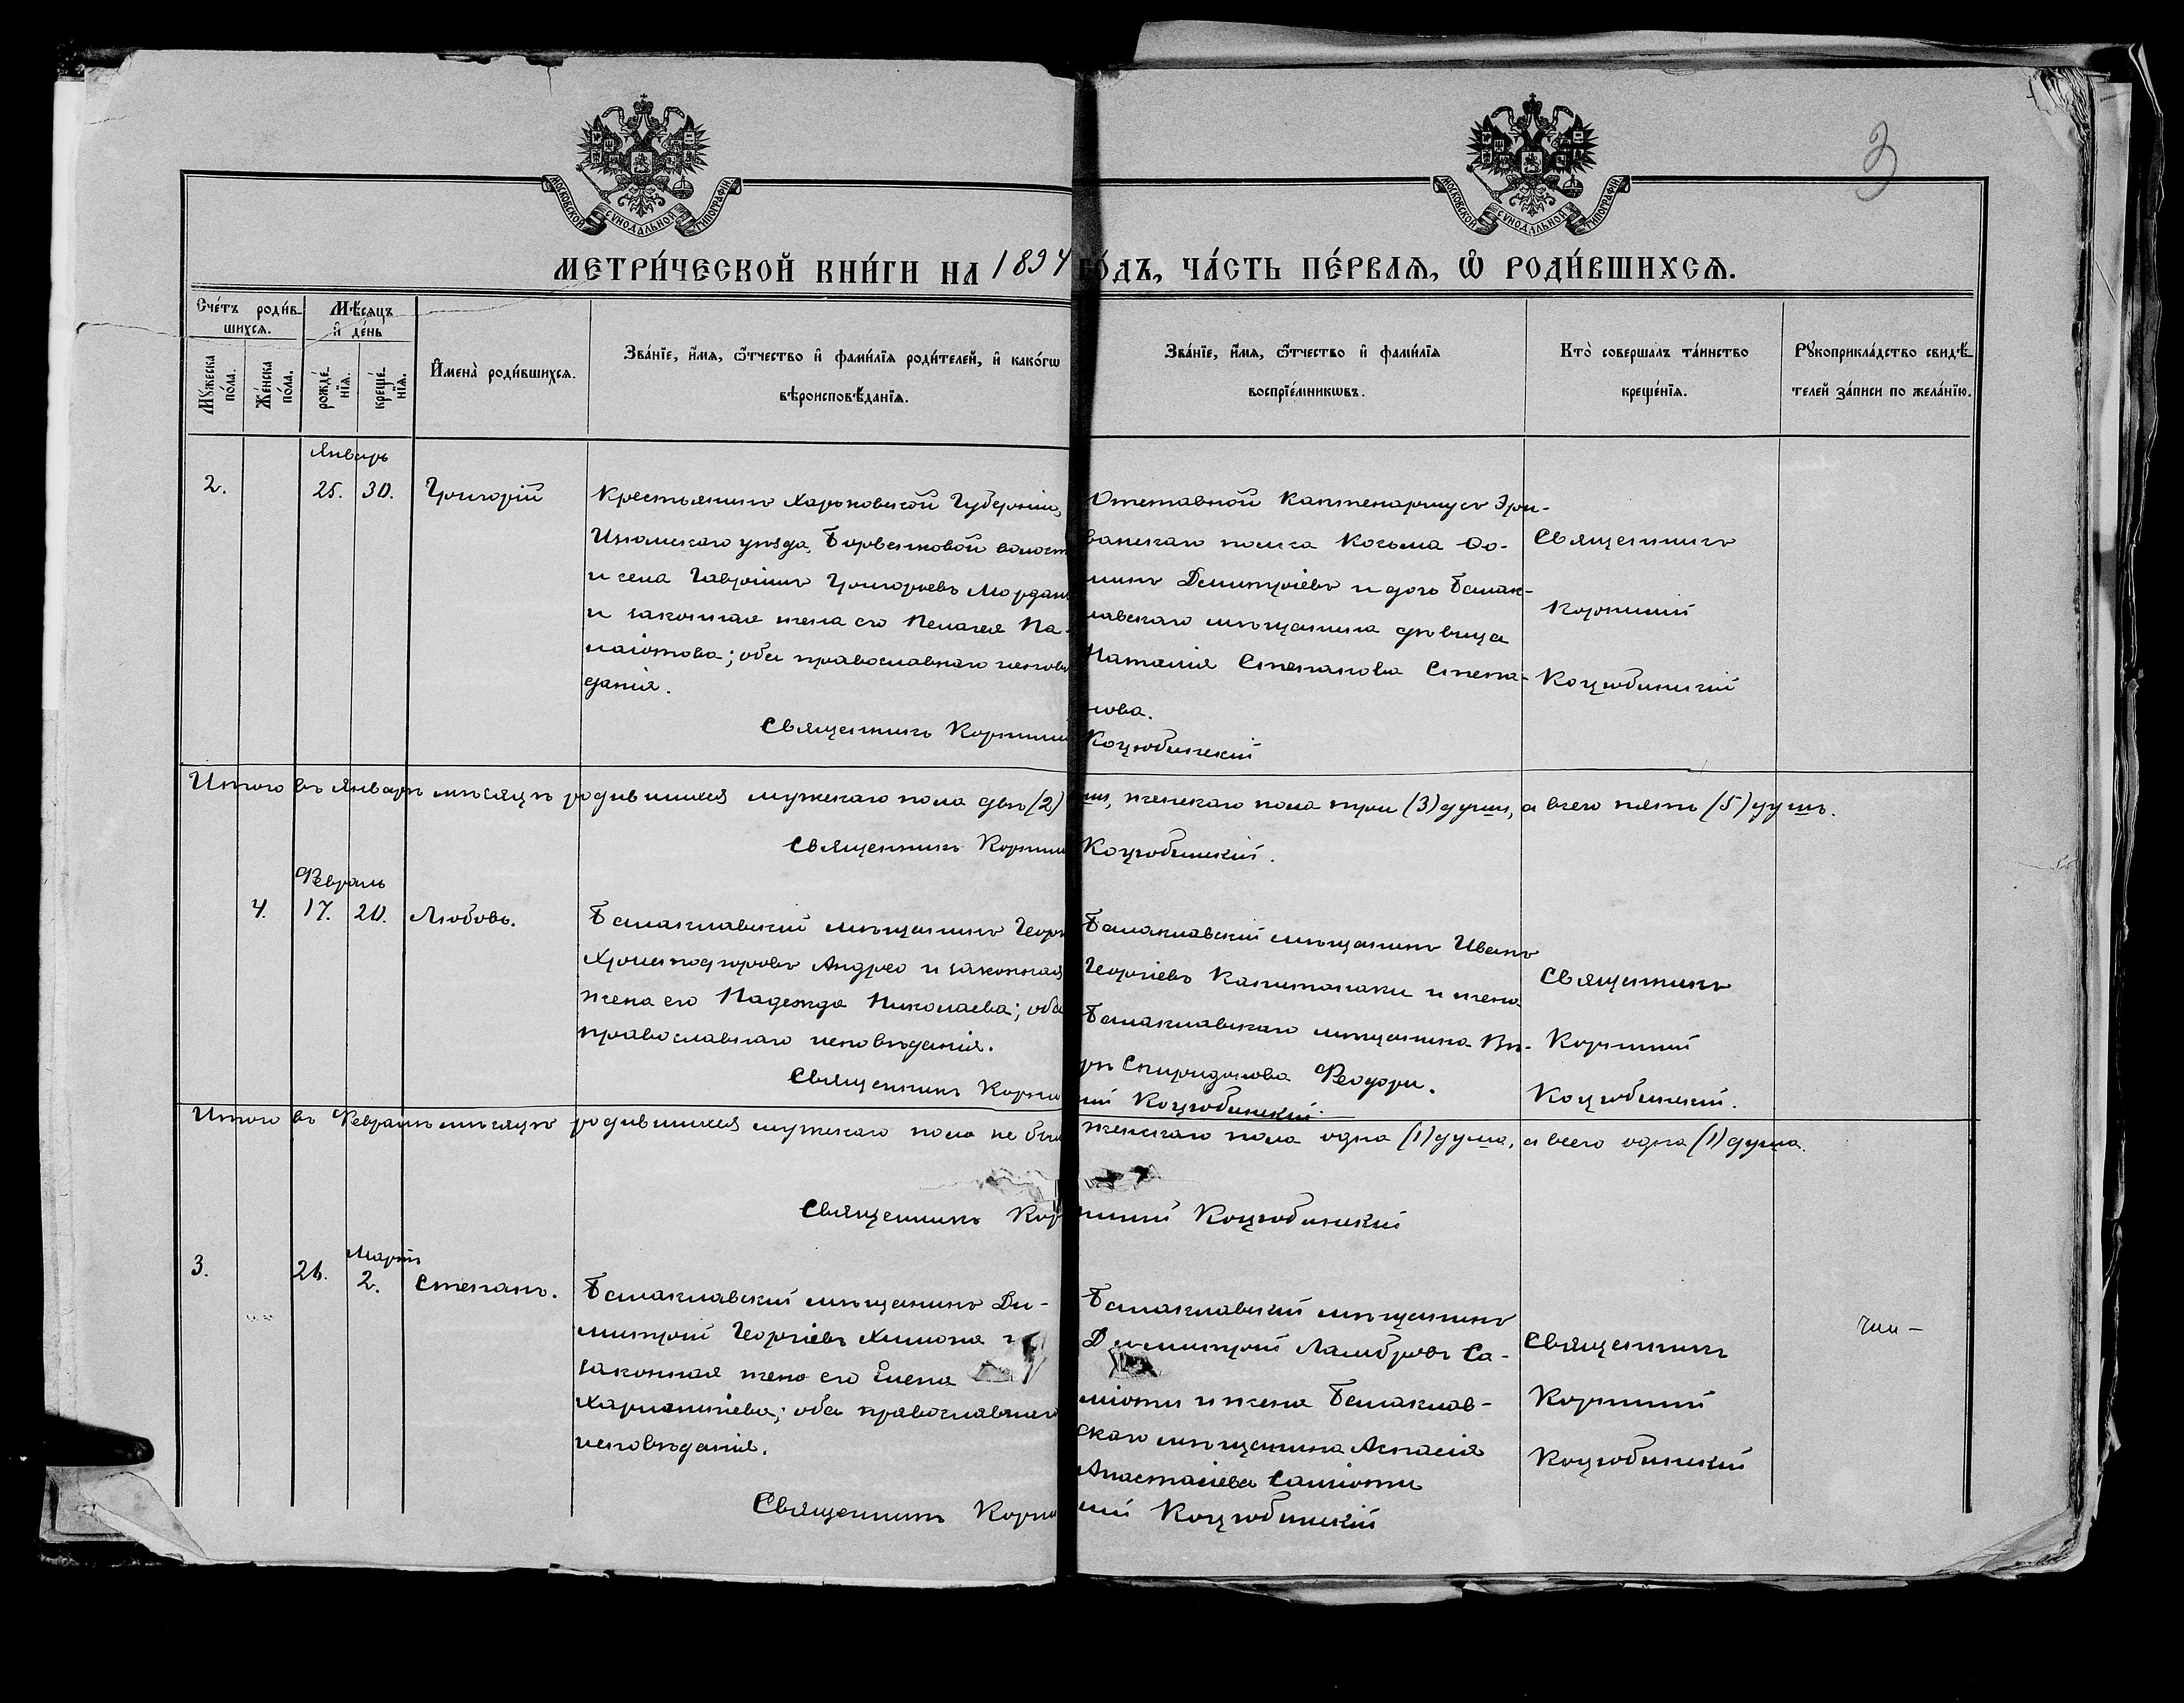 МОСКОВСКОЙ СѴНОДАЛЬНОЙ ТИПОГРАФІИ.
МОСКОВСКОЙ СѴНОДАЛЬНОЙ ТИПОГРАФІИ.
3
МЕТРИ́ЧЕСКОЙ КНИ́ГИ НА 1894 ГО́ДЪ, ЧА́СТЬ ПЕ́РВАЯ, Ѽ РОДИ́ВШИХСЯ.
Сче́тъ роди́в-
шихся.
Мѣ́сяцъ
и҆ де́нь
Мꙋ́жеска
по́ла.
Же́нска
по́ла.
рожде́-
нїя.
креще́-
нїя.
И҆мена̀ роди́вшихся.
Зва́нїе, и҆́мя, ѻ҆́тчество и҆ фами́лїя роди́телей, и҆ како́гѡ
вѣроисповѣ́данїя.
Зва́нїе, и҆́мя, ѻ҆́тчество и҆ фами́лїя
воспрїе́мникѡвъ.
Кто̀ соверша́лъ та́инство
креще́нїя.
Рꙋкоприкла́дство свидѣ́-
телей за́писи по жела́нїю.
Январь
2. 25. 30. Григорій
Крестьянинъ Харьковской Губерніи,
Изюмскаго уѣзда, Барвенковой волост
и села Гавріилъ Григорьевъ
и законная жена его Пелагея Па-
наіотова; оба православнаго исповѣ
данія.
Священникъ Корнилій
Отставной Каптенармусъ Эри-
ванскаго полка Козьма Ѳо-
минъ Димитріевъ и дочь Балак-
лавскаго мѣщанина дѣвица
Наталія Степанова Степа-
нова.
Коцюбинскій
Священникъ
Корнилій
Коцюбинскій
Итого въ Январѣ мѣсяцѣ родившихся мужскаго пола двѣ (2) ши, женскаго пола три (3) души, а всего пять (5) душъ.
Священникъ Корнили Коцюбинскій.
Февраль
4. 17. 20. Любовь.
Балаклавскій мѣщанинъ Георг
Христофоровъ Андрео и законная
жена его Надежда Николаева; оба
православнаго исповѣданія.
Священникъ Корни
Балаклавскій мѣщанинъ Иванъ
Георгіевъ Капитанаки и жена
Балаклавскаго мѣщанина Вѣ-
ра Спиридонова Феодори.
лій Коцюбинскій.
Священникъ
Корнилій
Коцюбинскій.
Итого въ Февралѣ мѣсяцѣ родившихся мужскаго пола не бы женскаго пола одна (1) душа, а всего одна (1) душа.
Священникъ Кор нилій Коцюбинскій
Мартъ
3. 26. 2. Степанъ.
Балаклавскій мѣщанинъ Ди-
митрій Георгіевъ Химона и
законная жена его Елена
Харлампіева; оба православнаго
исповѣданія.
Священникъ Корни
Балаклавскій мѣщанинъ
Димитрій Ламбровъ Са-
міоти и жена Балаклав-
скаго мѣщанина Аспасія
Анастасіева Саміоти
лій Коцюбинскій
Священникъ
Корнилій
Коцюбинскій